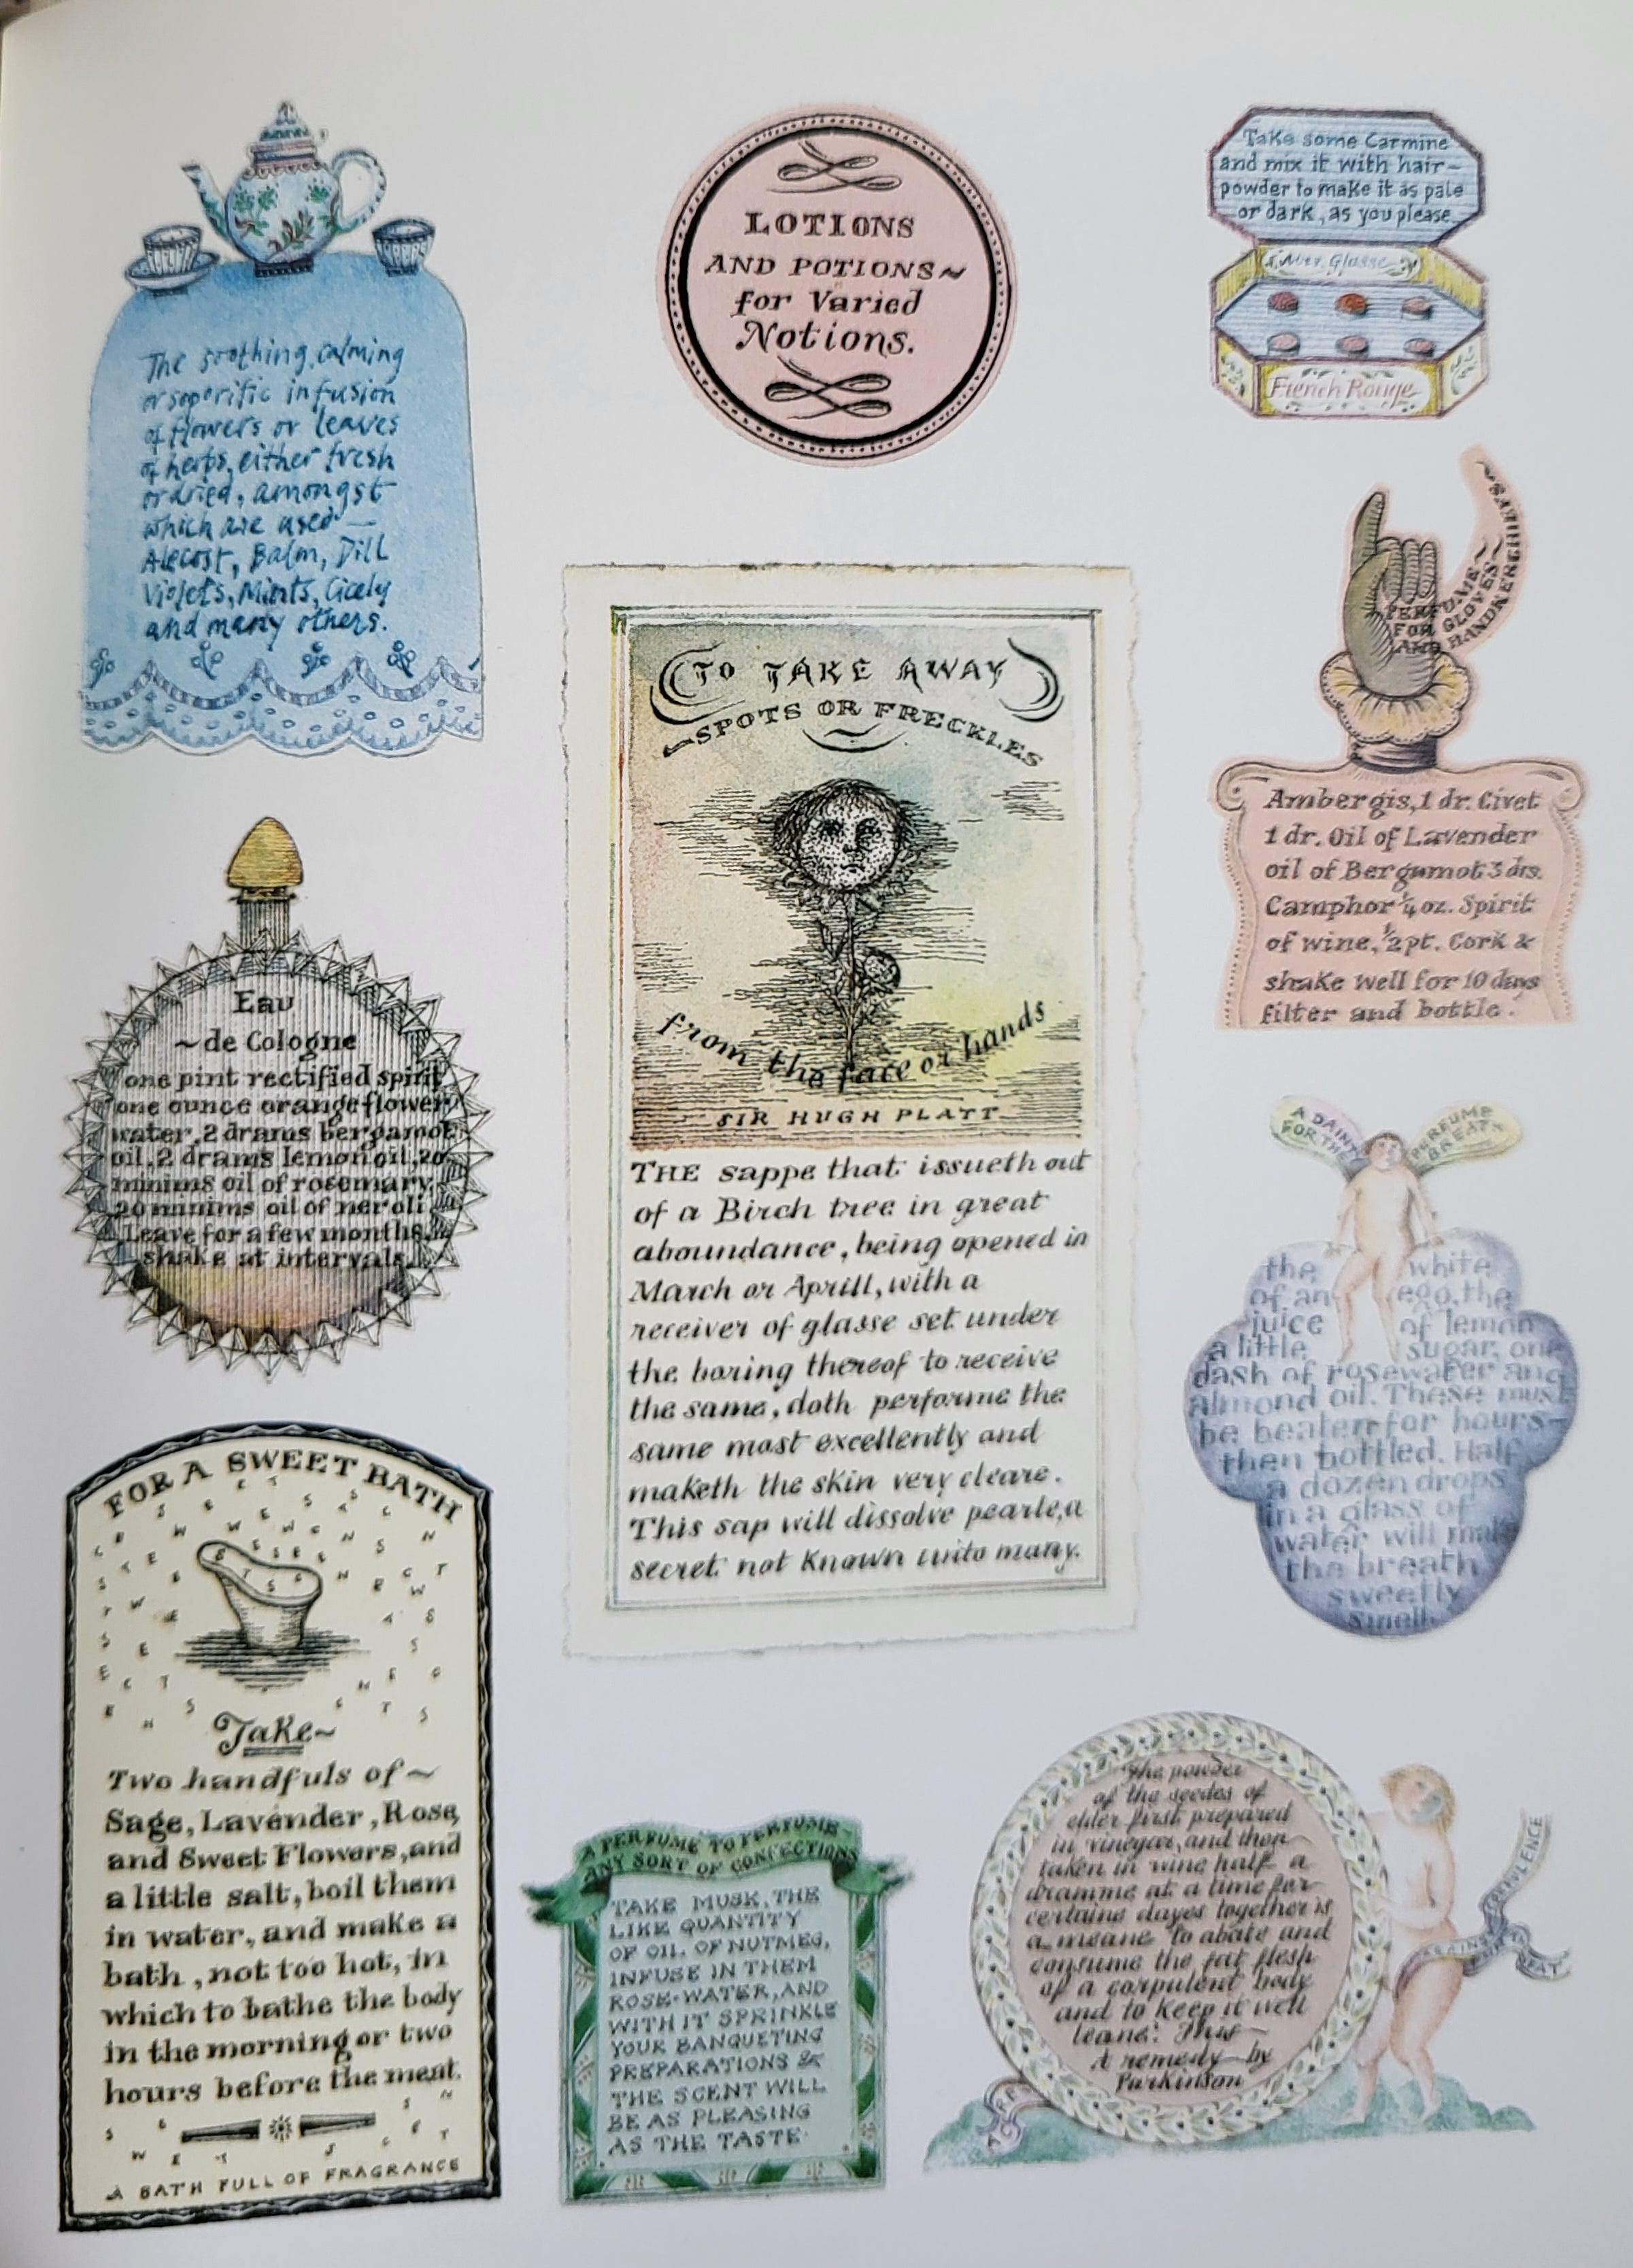 The soothing, calming
or soporific infusion
of flowers or leaves
of herbs, either fresh
or dried, amongst
which are used —
Alecost, Balm, Dill
Violets, Mints, Cicely
and many others.
LOTIONS
AND POTIONS~
for Varied
Notions.
Take some Carmine
and mix it with hair-
powder to make it as pale
or dark, as you please
Mrs. Glasse
French Rouge
PERFUME~
FOR GLOVES~
AND HANDKERCHIEVES~
Ambergis, 1 dr. Civet
1 dr. Oil of Lavender
oil of Bergamot 3 drs.
Camphor ¼ oz. Spirit
of wine, ½ pt. Cork &
shake well for 10 days
filter and bottle.
Eau
~de Cologne
one pint rectified spirit
one ounce orangeflower
water, 2 drams bergamot
oil, 2 drams lemon oil, 20
minims oil of rosemary,
20 minims oil of neroli
Leave for a few months,
shake at intervals.
TO TAKE AWAY
~SPOTS OR FRECKLES
from the face or hands
SIR HUGH PLATT
THE sappe that issueth out
of a Birch tree in great
aboundance, being opened in
March or Aprill, with a
receiver of glasse set under
the boring thereof to receive
the same, doth performe the
same most excellently and
maketh the skin very cleare.
This sap will dissolve pearle, a
secret not Known unto many.
A DAINTY PERFUME
FOR THE BREATH
the white
of an egg, the
juice of lemon
a little sugar, one
dash of rosewater and
almond oil. These must
be beaten for hours-
then bottled. Half
a dozen drops
in a glass of
water will make
the breath
sweetly
smell.
FOR A SWEET BATH
Take~
Two handfuls of~
Sage, Lavender, Rose,
and Sweet Flowers, and
a little salt, boil them
in water, and make a
bath, not too hot, in
which to bathe the body
in the morning or two
hours before the meat.
A BATH FULL OF FRAGRANCE
A PERFUME TO PERFUME~
ANY SORT OF CONFECTIONS
TAKE MUSK, THE
LIKE QUANTITY
OF OIL OF NUTMEG,
INFUSE IN THEM
ROSE-WATER, AND
WITH IT SPRINKLE
YOUR BANQUETING
PREPARATIONS &
THE SCENT WILL
BE AS PLEASING
AS THE TASTE
The powder
of the seedes of
elder first prepared
in vinegar, and then
taken in wine half a
dramme at a time for
certaine dayes together is
a meane to abate and
consume the fat flesh
of a corpulent body
and to keep it well
leane: This~
A remedy by
Parkinson
FAT